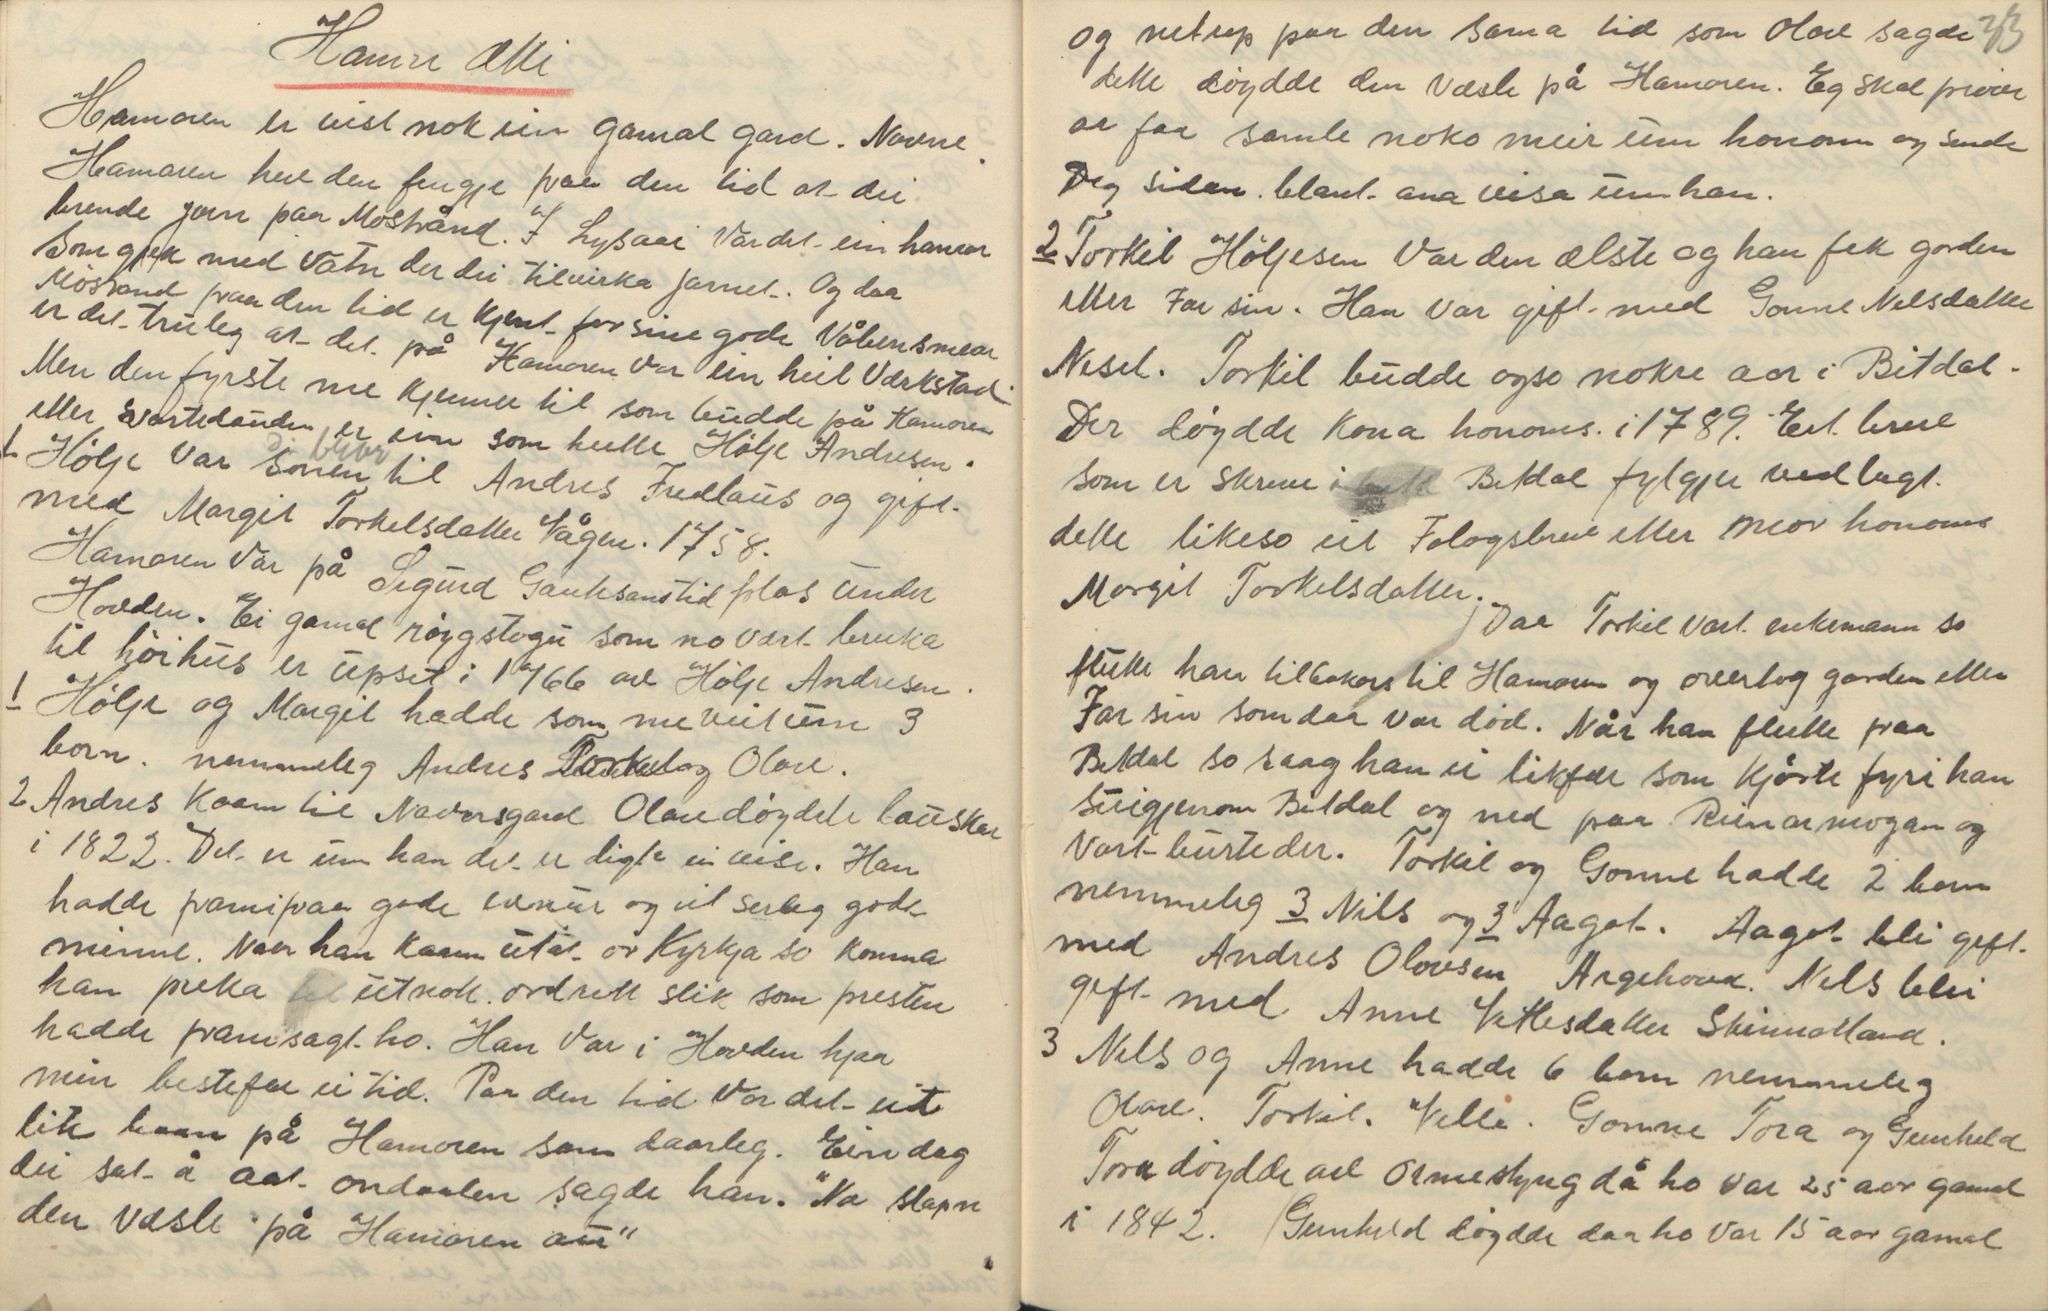 Hamre ætti
Hamaren er vist nok ein gamal gard. Navne
Hamaren heve den fengje fraa den tid at dei
brende jarn paa Mosstrånd. I Lysaai var det ein hamar
som gjek med vatn der dei tilvirka jarnet. Og daa
Mosstrand fraa den tid er kjent for sine gode Våbensmear
er det truleg at det på Hamaren var ein heil Værkstad.
Men den fyrste me kjenner til som budde på Hamoren
etter Svartedauden er ein som heitte Hölje Andresen.
1 Hölje var sonen til Andres Fredlaus og gift
med Margit Torkelsdatter Vågen. 1758.
Hamaren var på Sigurd Gauksens tid plas under
Hovden. Ei gamal röygstogu som no vert bruka
til höihus er upsett i 1766 av Hölje Andresen.
1 Hölje og Margit hadde som me veit um 3
born. nemmeleg Andres Torkel og Olav.
2 Andres kaam til Naversgard Olav döydde lauskar
i 1822. Det er um han det er digta ei vise. Han
hadde framifraa gode evnur og eit serleg godt
minne. Naar han kaam utat or Kyrkja so konna
han preka utnok. ordrett slik som presten
hadde framsagt ho. Han var i Hovden hjaa
min bestefar ei tid. Paa den tid var det eit
lite baan på Hamoren som daarleg. Ein dag
dei sat å aat ondaalen sagde han. "Na slapn
den væsle på Hamoren au"
33
og netup paa den sama tid som Olav sagde
dette döydde den væsle på Hamoren. Eg skal pröva
aa faa samle noko meir um honom og sende
Deg sidan. blant ana visa um han.
2 Torkil Höljesen var den ælste og han fek garden
etter Far sin. Han var gift med Gonne Nelsdatter
Neset. Torkil budde ogso nokre aar i Bitdal.
Der döydde kona honoms. i 1789. Eit brev
som er skreve i Bitdal fylgjer vedlagt
dette likeso eit Fologsbrev etter Mor honoms
Margit Torkelsdatter.
Daa Torkil vart enkemann so
flutte han tilbakars til Hamaren og overtog garden etter
Far sin som daa var död. Når han flutte fraa
Betdal so saag han ei likfær som kjörte fyri han
ut igjenom Betdal og ned paa Reinarmogan og
vart burte der. Torkil og Gonne hadde 2 born
nemmeleg 3 Nils og 3 Aagot. Aagot blei gift
med Andres Olovsen Argehovd. Nels blei
gift med Anne Vetlesdatter Skinnarland.
3 Nels og Anne hadde 6 born nemmeleg
Olav. Torkil. Vetle. Gonne Tora og Gunheld
Tora döydde av Ormestyng då ho var 25 aar gamal
i 1842. Gunheld döydde daa ho var 15 aar gamal